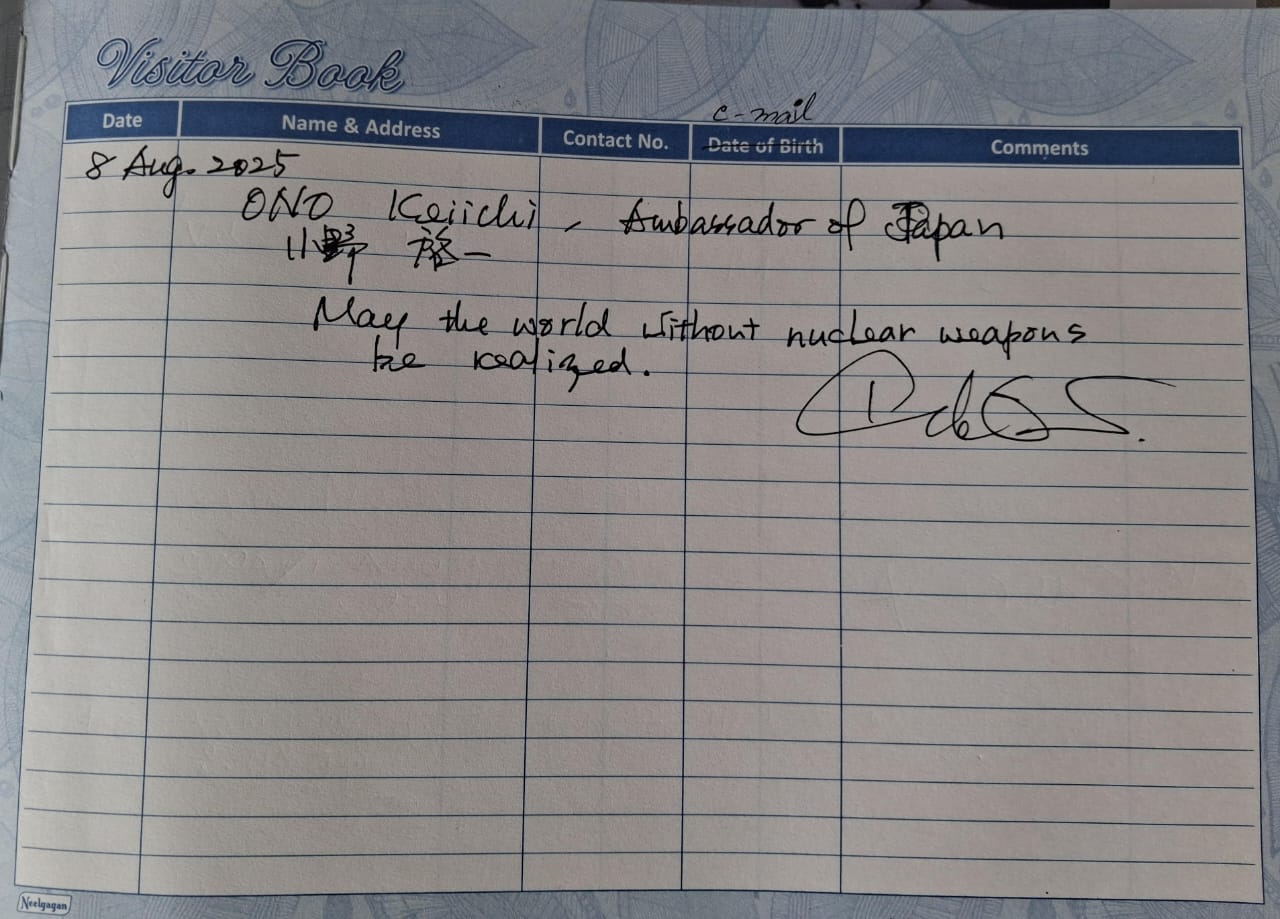 Visitor Book
e-mail
Date Name & Address Contact No. Date of Birth Comments
8 Aug. 2025
ONO Keiichi, Ambassador of Japan
小野 啓一
May the world without nuclear weapons
be realized.
Neelgagan